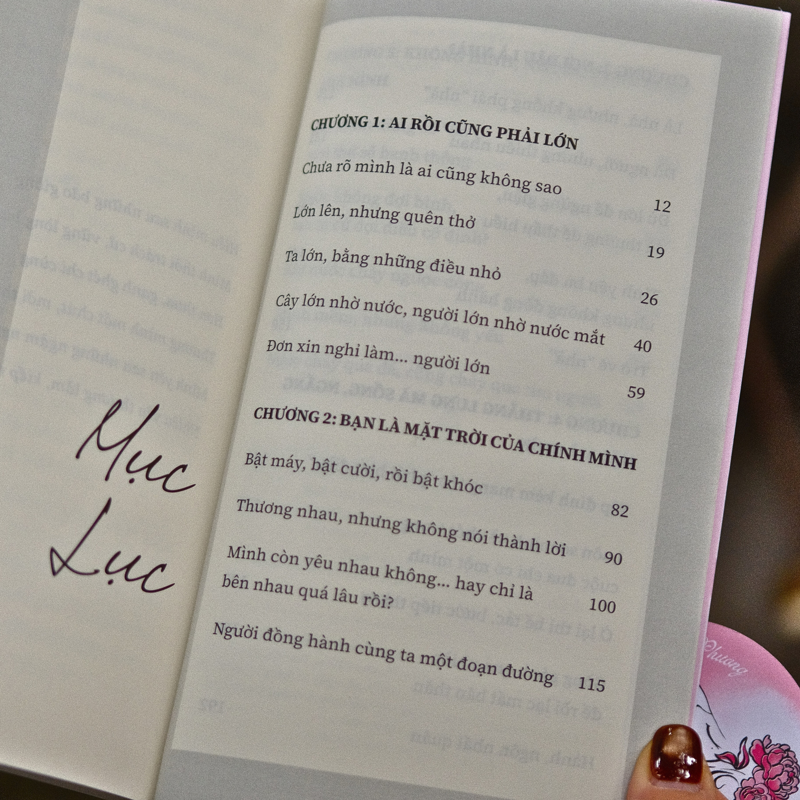 Mục
Lục
CHƯƠNG 1: AI RỒI CŨNG PHẢI LỚN
Chưa rõ mình là ai cũng không sao 12
Lớn lên, nhưng quên thở 19
Ta lớn, bằng những điều nhỏ 26
Cây lớn nhờ nước, người lớn nhờ nước mắt 40
Đơn xin nghỉ làm... người lớn 59
CHƯƠNG 2: BẠN LÀ MẶT TRỜI CỦA CHÍNH MÌNH
Bật máy, bật cười, rồi bật khóc 82
Thương nhau, nhưng không nói thành lời 90
Mình còn yêu nhau không... hay chỉ là
bên nhau quá lâu rồi? 100
Người đồng hành cùng ta một đoạn đường 115
Phương